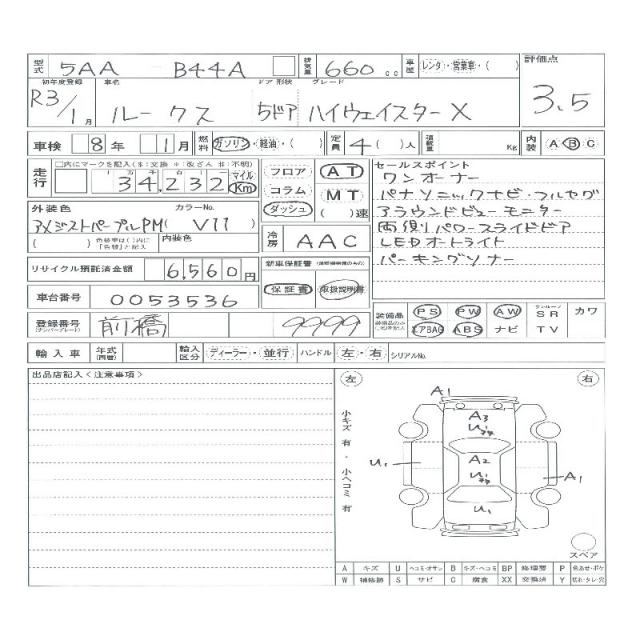 型式 5AA B44A 排気量 660 cc 車歴 レンタ・営業車・( ) 評価点
初年度登録 車名 ドア 形状 グレード
R3/1月 ルークス 5ドア ハイウェイスターX 3.5
車検 8年 1月 燃料 ガソリン・軽油・( ) 定員 4( )人 積載量 Kg 内装 A B C
走行 □内にマークを記入($:交換 *:改ざん #:不明)
十万 万 千 百 十 一 マイル
34,232 Km
フロア コラム ダッシュ
AT MT ( )速
セールスポイント
ワンオーナー
パナソニックナビ・フルセグ
アラウンドビューモニター
両側パワースライドドア
LEDオートライト
パーキングソナー
外装色 カラーNo.
アメジストパープルPM( V11 )
( ) 色替車は( )内に「色替」と記入 内装色
冷房 AAC
リサイクル預託済金額 6,560円
新車保証書
保証書 取扱説明書
車台番号 0053536
登録番号 (ナンバープレート) 前橋 9999
装備品 PS PW AW サンルーフ SR カワ
エアBAG ABS ナビ TV
輸入車 年式(西暦) 輸入区分 ディーラー・並行 ハンドル 左・右 シリアルNo.
出品店記入<注意事項>
左 右
小キズ有・小ヘコミ有
A1
A3
U1
A2
U1
A1
U1
U1
スペア
A キズ U ヘコミ・オサレ B キズ・ヘコミ BP 修理要 P 色あせ・ボケ
W 補修跡 S サビ C 腐食 XX 交換済 Y 切れ・タレ・穴